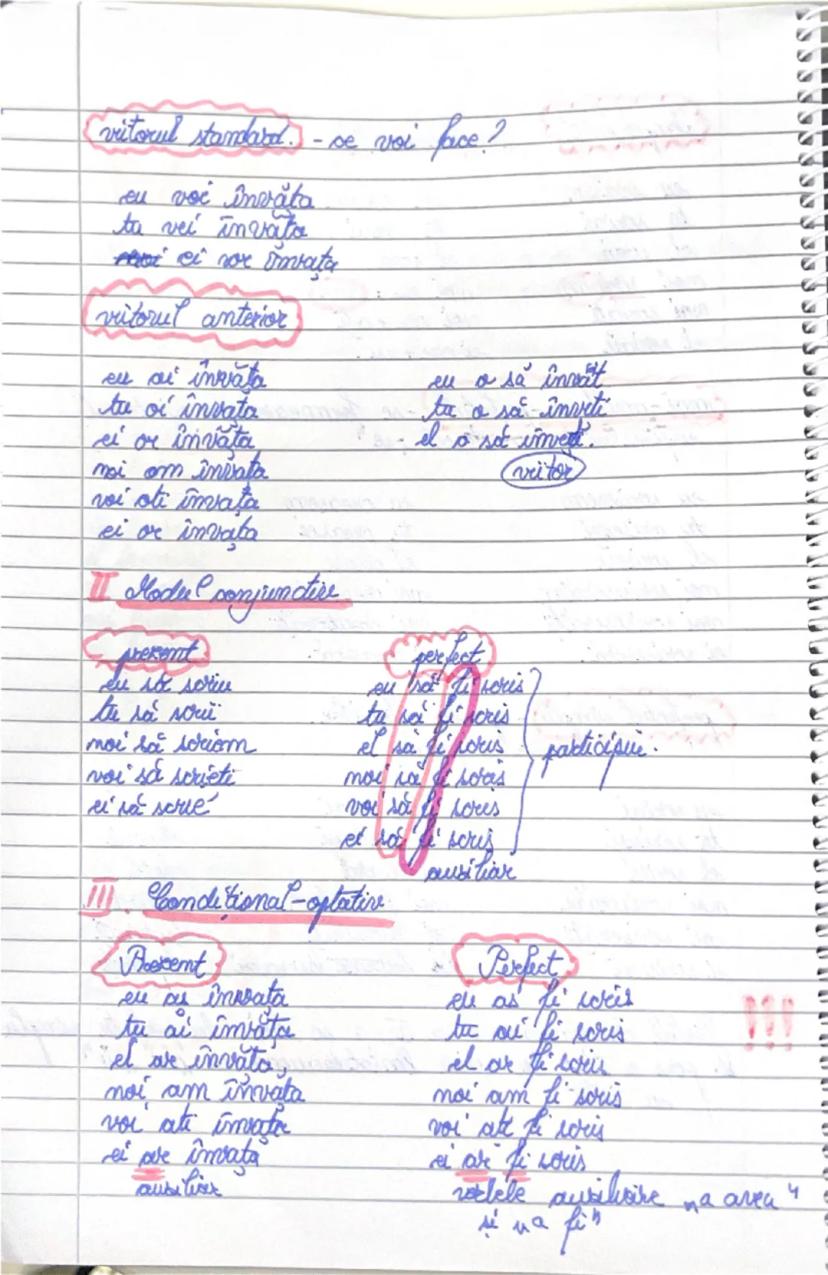 viitorul standard. - ce voi face?
eu voi învăța
tu vei învăța
ei vor învăța
viitorul anterior
eu oi învăța
tu oi învăța
ei or învăța
noi om învăța
voi oti învăța
ei or învăța
eu o să învăt
tu o să înveti
el o să învețe.
viitor
II Modul conjunctiv
prezent
eu să scriu
tu să scrii
noi să scriem
voi să scrieti
ei să scrie
perfect
eu să fi scris
tu să fi scris
el să fi scris
noi să fi scris
voi să fi scris
ei să fi scris
participiu.
auxiliar
III Condițional-optativ
Prezent
eu aș învăța
tu ai învăța
el ar învăța
noi am învăța
voi ati învăța
ei ar învăța
auxiliar
Perfect
eu as fi scris
tu ai fi scris
el ar fi scris
noi am fi scris
voi ati fi scris
ei ar fi scris
!!!
verbele auxiliare „a avea"
și „a fi"